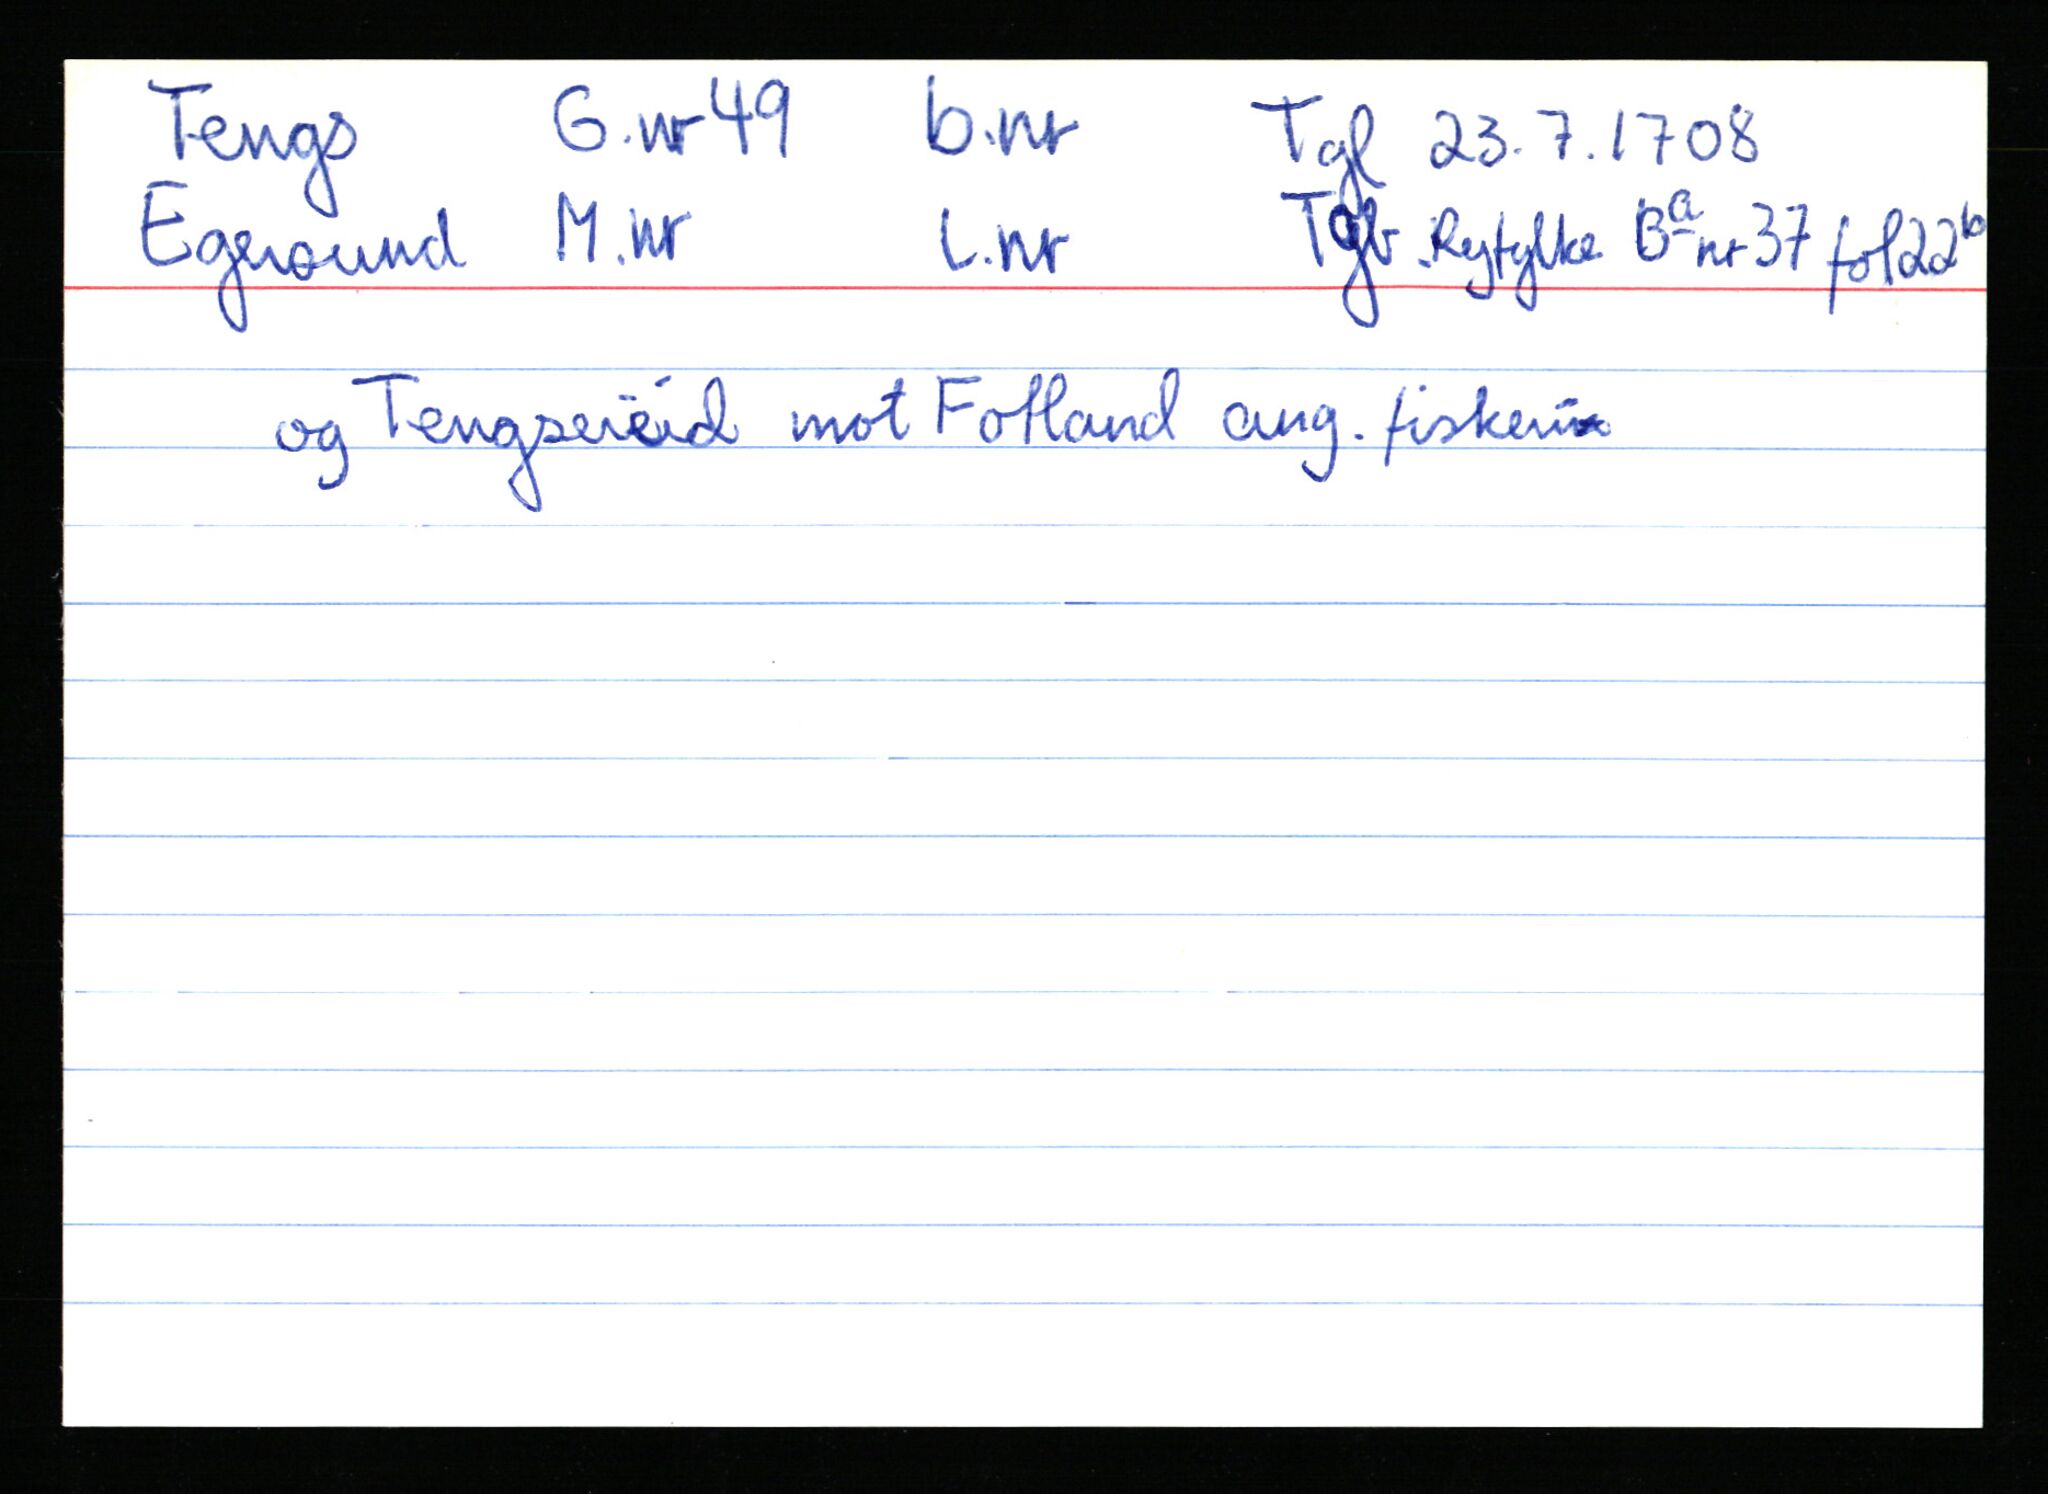 Tengs G.nr 49 b.nr Tgl 23.7.1708
Egersund M.nr L.nr Tgb. Ryfylke Ba nr 37 fol 22b
og Tengseieid mot Fotland ang. fiskeri